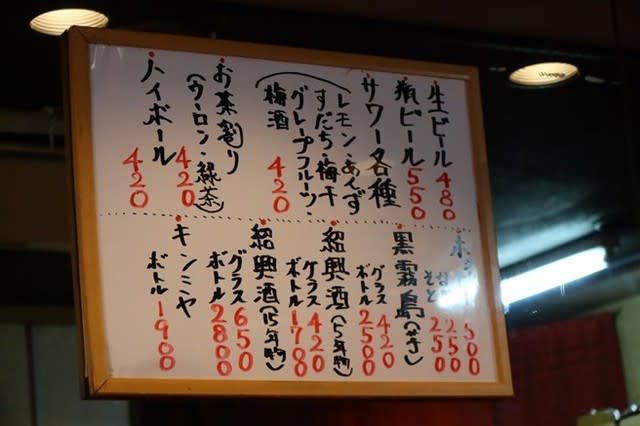 生ビール 480
瓶ビール 550
サワー各種
(レモン・あんず
すだち・梅干
グレープフルーツ・
梅酒 420
お茶割り
(ウーロン・緑茶) 420
ハイボール 420
500
250
250
黒霧島(芋)
グラス 420
ボトル 2500
紹興酒(5年物)
グラス 420
ボトル 1780
紹興酒(15年物)
グラス 650
ボトル 2800
キンミヤ
ボトル 1900